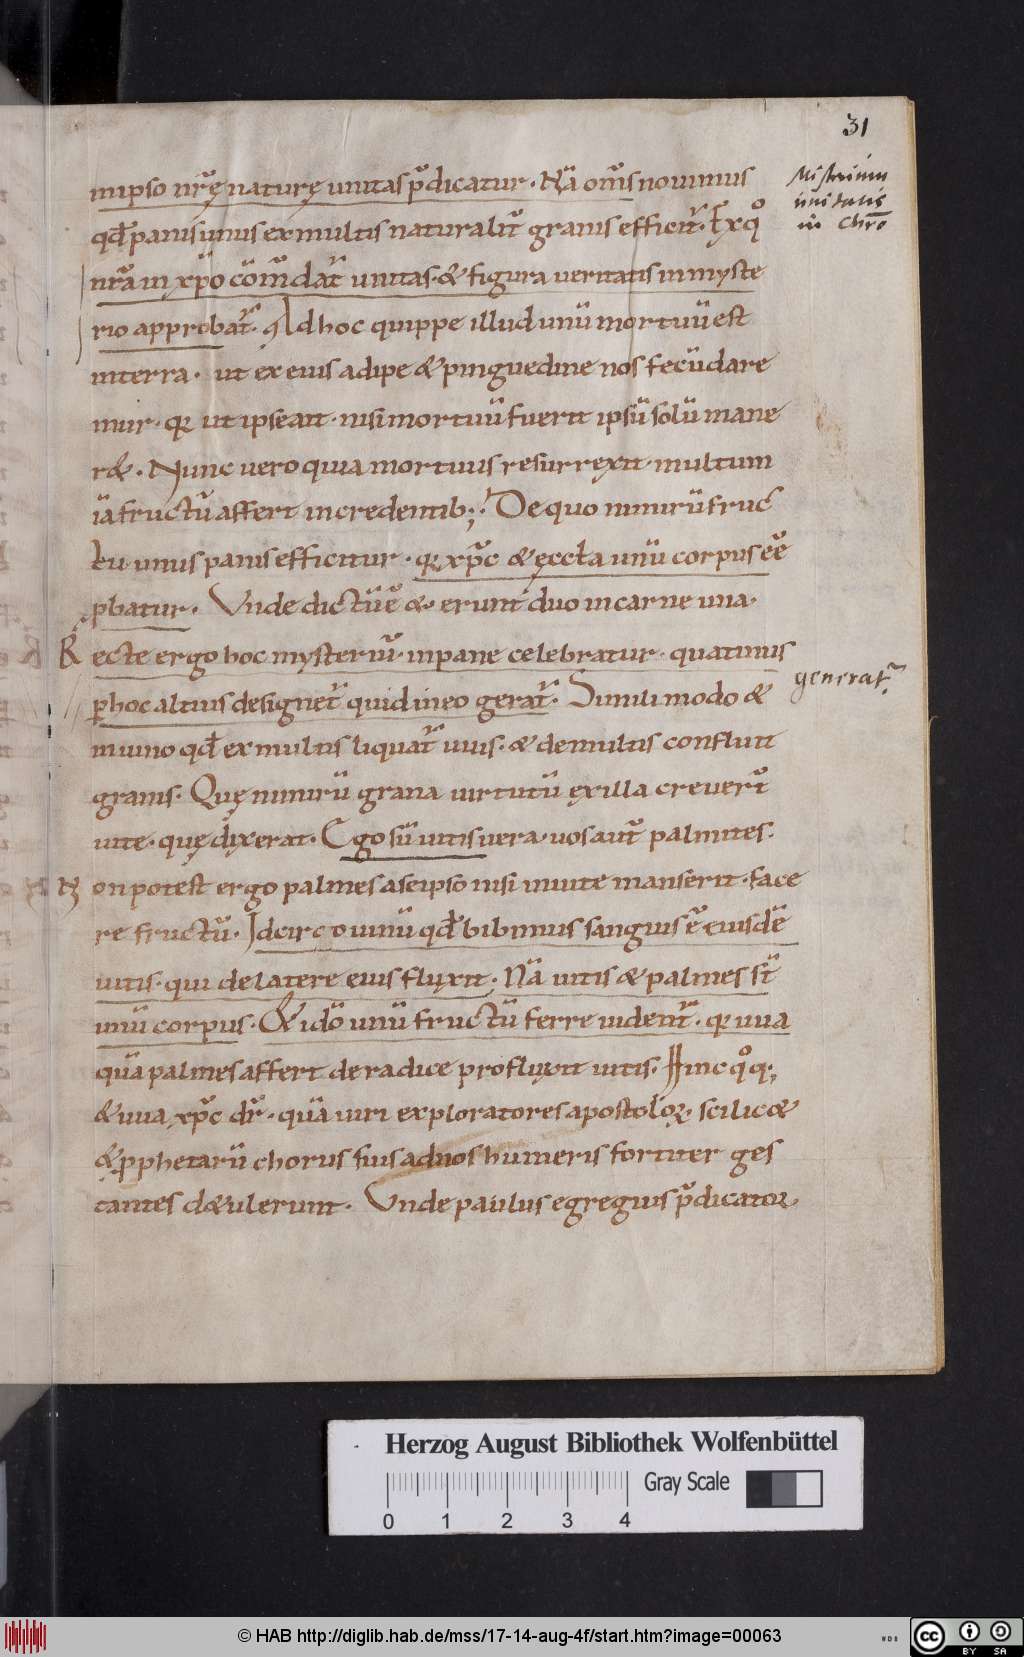 31
Misterium
unitatis
in Chro
in ipso nrę naturę unitas p̄dicatur. Nā om̄s novimus
qd̄ panis unus ex multis naturalit̄ granis efficit̄. Ex q°
nr̄a in xp̄o com̄dat̄ unitas. & figura veritatis in myste
rio approbat̄. Ad hoc quippe illud unū mortuū est
in terra. ut ex eius adipe & pinguedine nos fecūdare
mur. quia ut ipse ait. nisi mortuū fuerit ipsū solū mane
r&. Nunc vero quia mortuus resurrexit multum
iā fructū affert in credentib;. De quo nimirū fruc
tu unus panis efficitur. quia xp̄c & ęccl̄a unū corpus eē
p̱batur. Unde dictū ē &. erunt duo in carne una.
Recte ergo hoc mysteriū. in pane celebratur. quatinus
p̱ hoc altius designet̄ quid in eo gerat̄. Simili modo &
generat̄
in uino qd̄ ex multis liquat̄ uuis. & de multis confluit
granis. Quę nimirū grana uirtutū ex illa creuer̄t
uite. quę dixerat. Ego sū uitis vera. uos aut̄ palmites.
Non potest ergo palmes a seipso nisi in uite manserit. face
re fructū. Idcirco uinū qd̄ bibimus sanguis ē eiusdē
uitis. qui de latere eius fluxit. Nā uitis & palmes st̄
unū corpus. Et ideo unū fructū ferre uident̄. quia uua
quā palmes affert de radice profluxit uitis. Hinc q°q;
& uua xp̄c dr̄. quā uiri exploratores apostoloꝝ. scilic&
& p̱phetarū chorus suis ad nos humeris fortiter ges
tantes d&ulerunt. Unde paulus egregius p̄dicator
Herzog August Bibliothek Wolfenbüttel
Gray Scale
0 1 2 3 4
© HAB http://diglib.hab.de/mss/17-14-aug-4f/start.htm?image=00063
WDB
cc BY SA